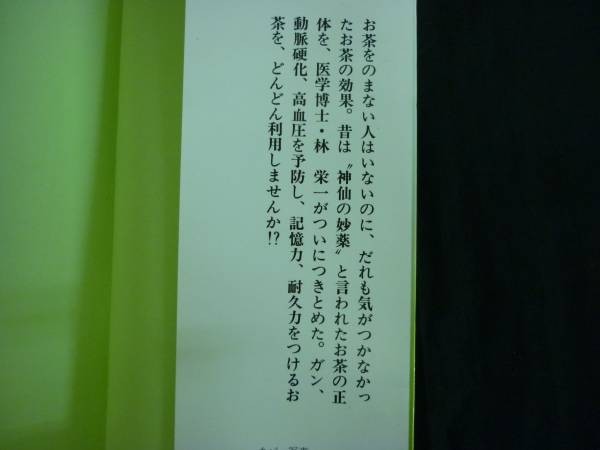 お茶をのまない人はいないのに、だれも気がつかなかっ
たお茶の効果。昔は〝神仙の妙薬〟と言われたお茶の正
体を、医学博士・林　栄一がついにつきとめた。ガン、
動脈硬化、高血圧を予防し、記憶力、耐久力をつけるお
茶を、どんどん利用しませんか!?